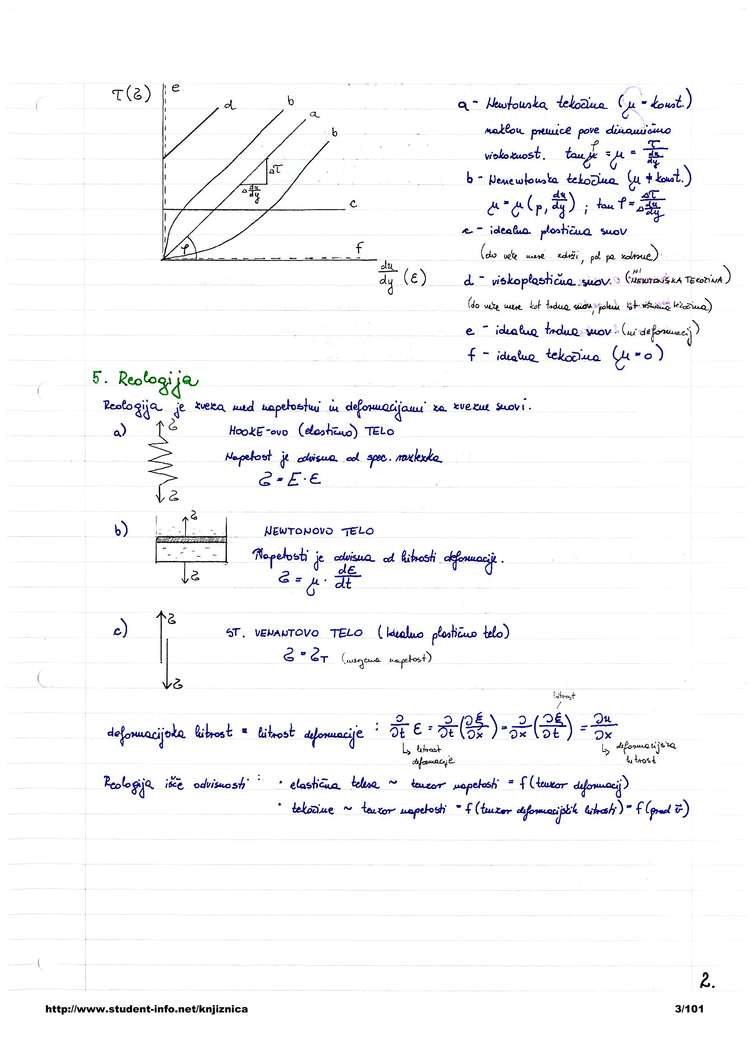 τ(σ)
e
d
b
a
b
Δτ
Δ du/dy
c
φ
f
du/dy (ε)
a - Newtonska tekočina (μ = konst.)
naklon premice pove dinamično
viskoznost. tan φ = μ = τ / du/dy
b - Nenewtonska tekočina (μ ≠ konst.)
μ = μ (p, du/dy) ; tan φ = Δτ / Δ du/dy
c - idealna plastična snov
(do neke mere zdrži, pol pa zdrsne)
d - viskoplastična snov (ni NEWTONSKA TEKOČINA)
(do neke mere kot trdna snov, potem kot tekočina)
e - idealna trdna snov (ni deformacij)
f - idealna tekočina (μ = 0)
5. Reologija
Reologija je zveza med napetostmi in deformacijami za zvezne snovi.
a)
σ
σ
HOOKE-ovo (elastično) TELO
Napetost je odvisna od spec. raztezka
σ = E · ε
b)
σ
σ
NEWTONOVO TELO
Napetosti je odvisna od hitrosti deformacije.
σ = μ · dε/dt
c)
σ
σ
ST. VENANTOVO TELO (Idealno plastično telo)
σ = σT (mejna napetost)
hitrost
deformacijska hitrost = hitrost deformacije : ∂/∂t ε = ∂/∂t (∂ξ/∂x) = ∂/∂x (∂ξ/∂t) = ∂u/∂x
↳ hitrost deformacije
↳ deformacijska hitrost
Reologija išče odvisnosti : · elastična telesa ~ tenzor napetosti = f (tenzor deformacij)
· tekočine ~ tenzor napetosti = f (tenzor deformacijskih hitrosti) = f (grad v⃗)
2.
http://www.student-info.net/knjiznica
3/101